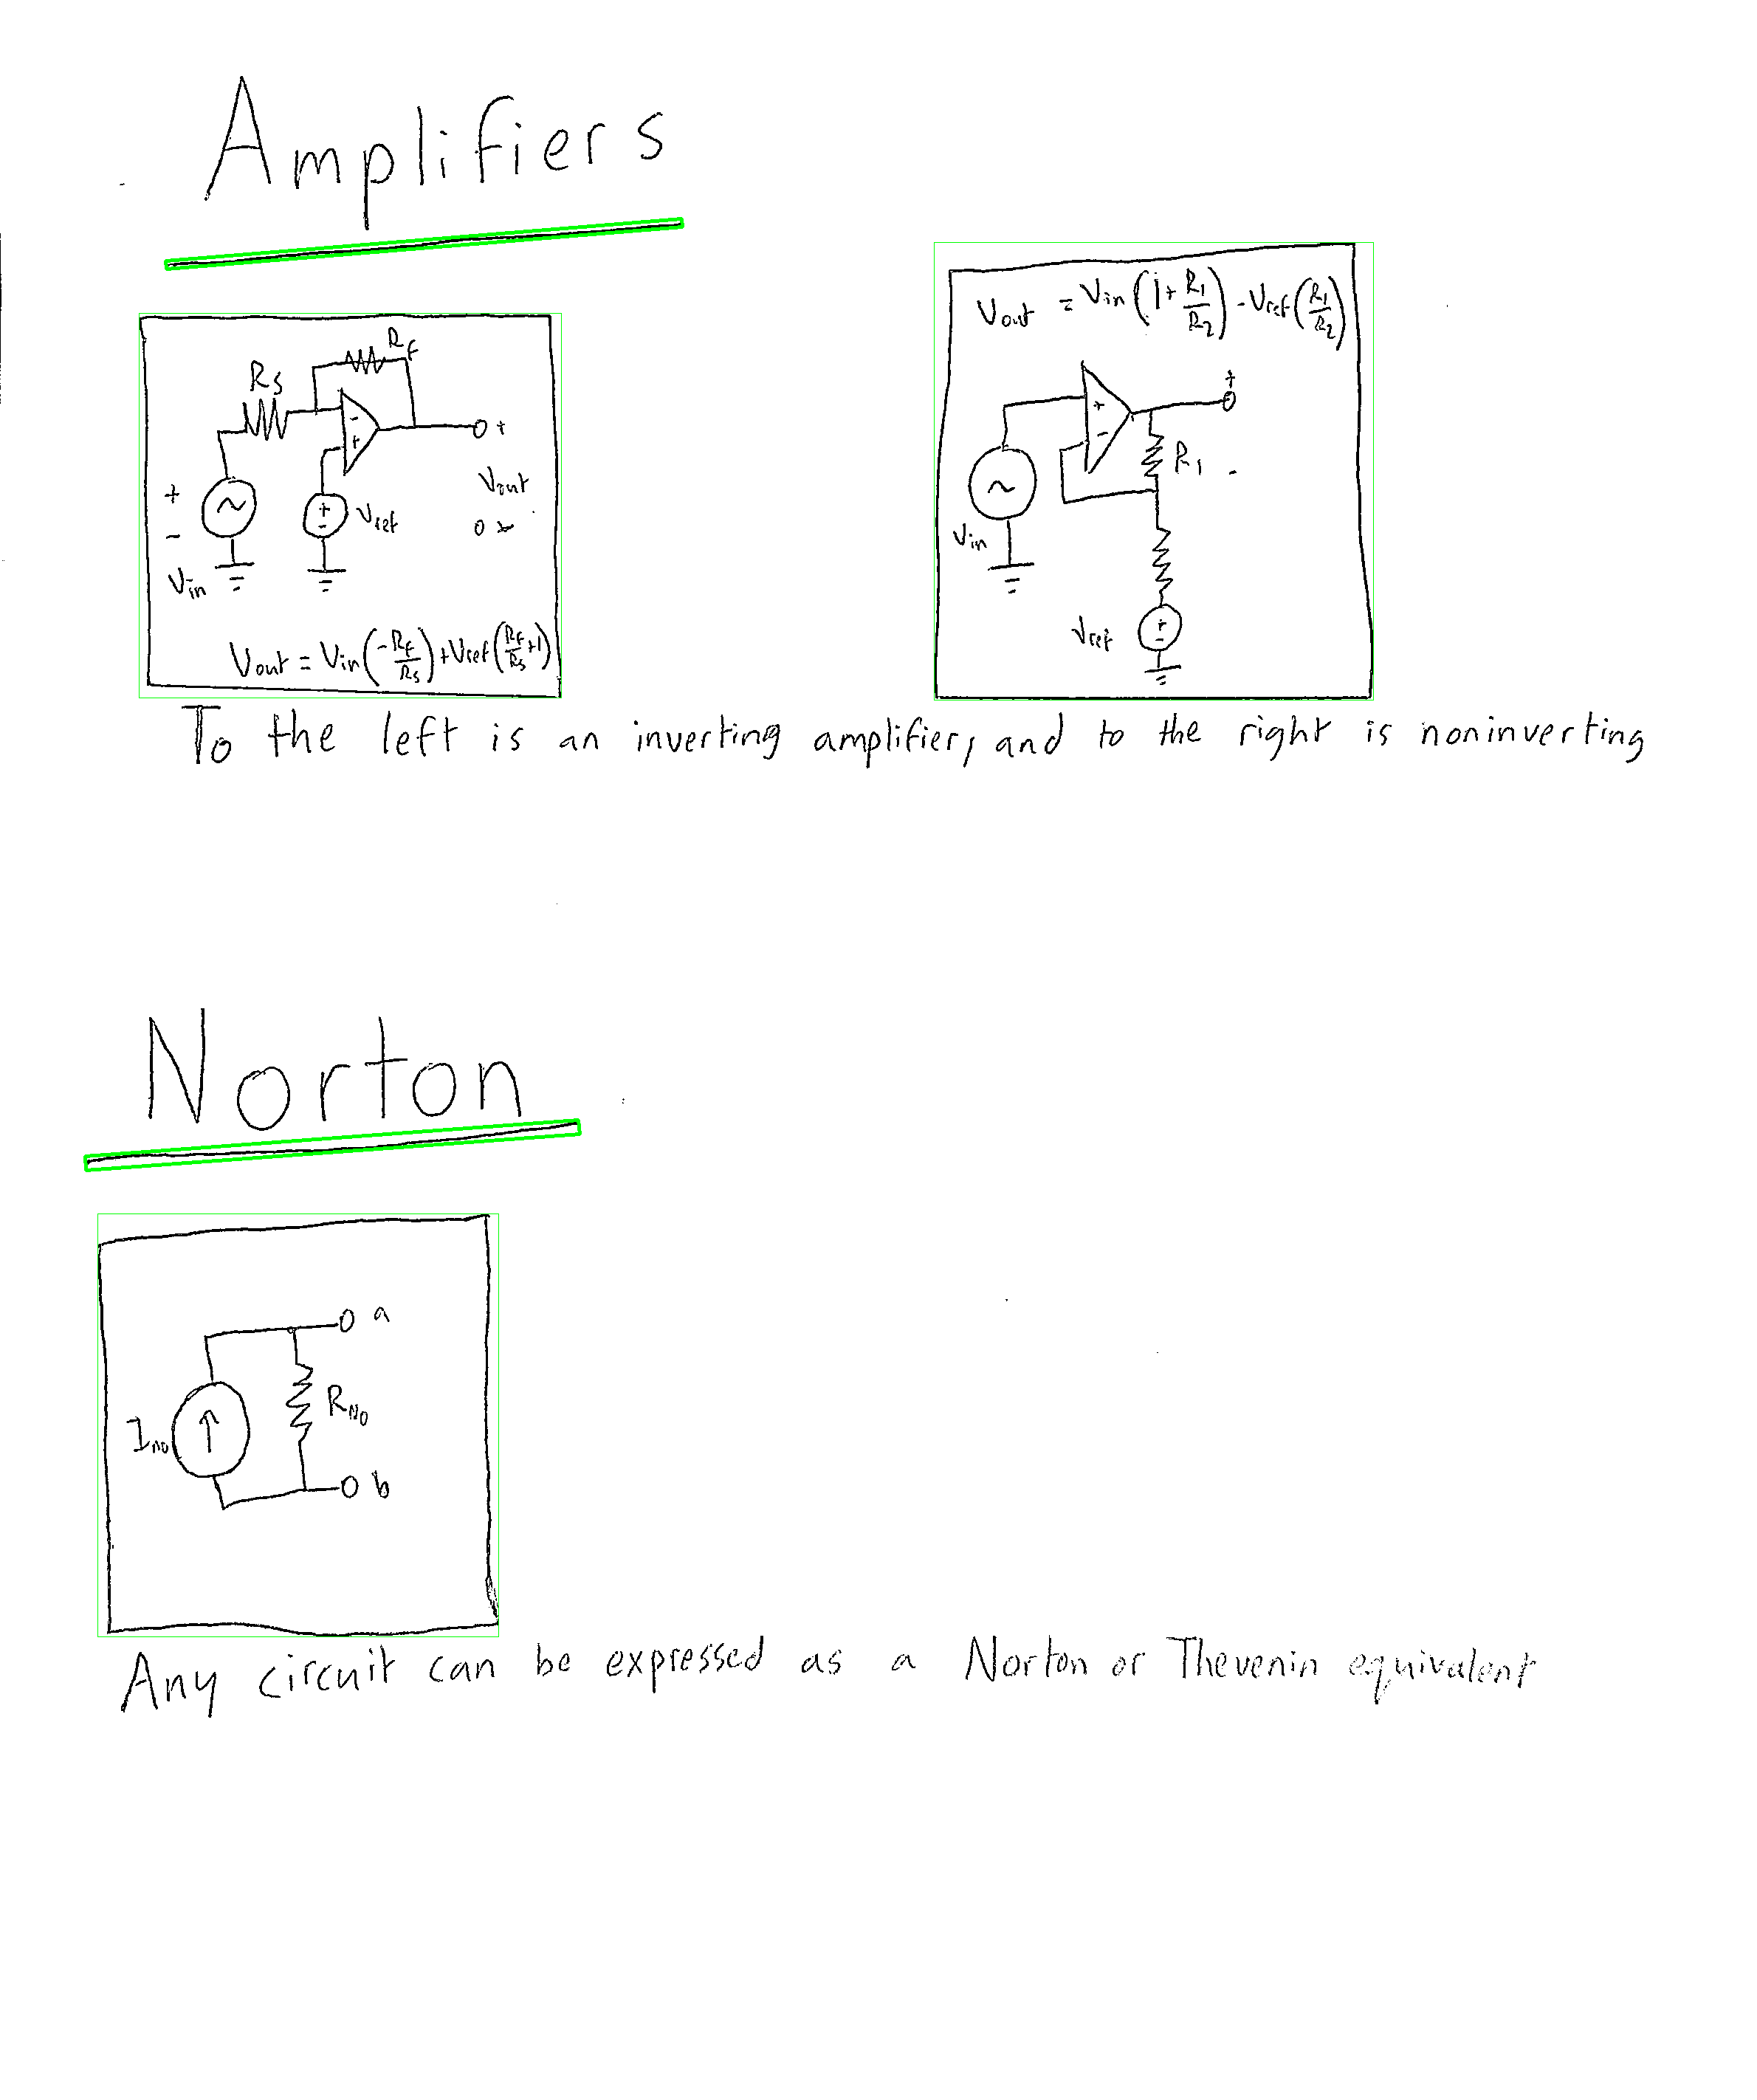 Amplifiers
Rs
Rf
-
+
+
+
-
Vin
+
-
Vref
Vout
Vout = Vin(-Rf/Rs)+Vref(Rf/Rs+1)
Vout = Vin(1+R1/R2)-Vref(R1/R2)
+
+
-
R1
-
Vin
Vref
+
-
To the left is an inverting amplifier, and to the right is noninverting
Norton
a
INo
RNo
b
Any circuit can be expressed as a Norton or Thevenin equivalent